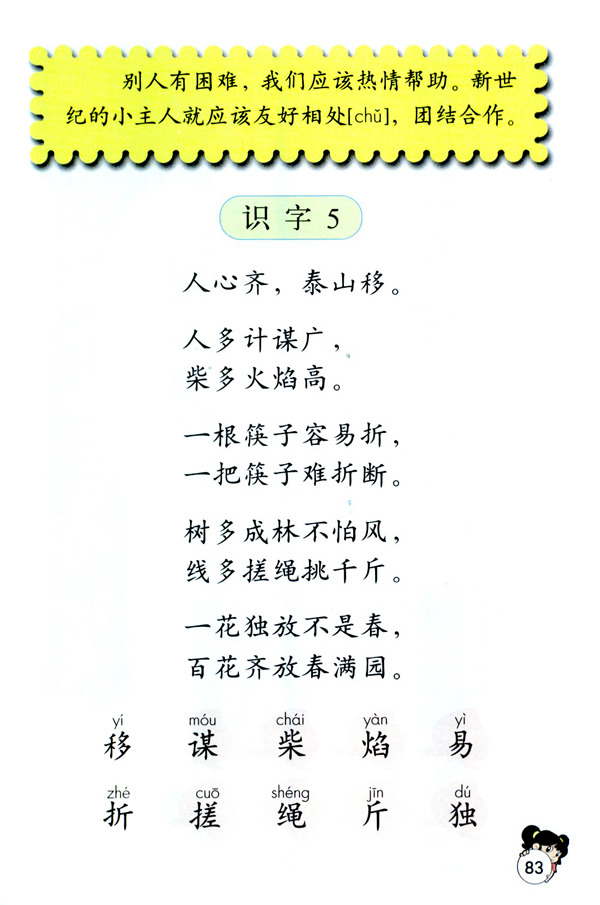 别人有困难，我们应该热情帮助。新世
纪的小主人就应该友好相处[chǔ]，团结合作。
识字5
人心齐，泰山移。
人多计谋广，
柴多火焰高。
一根筷子容易折，
一把筷子难折断。
树多成林不怕风，
线多搓绳挑千斤。
一花独放不是春，
百花齐放春满园。
yí móu chái yàn yì
移 谋 柴 焰 易
zhé cuō shéng jīn dú
折 搓 绳 斤 独
83